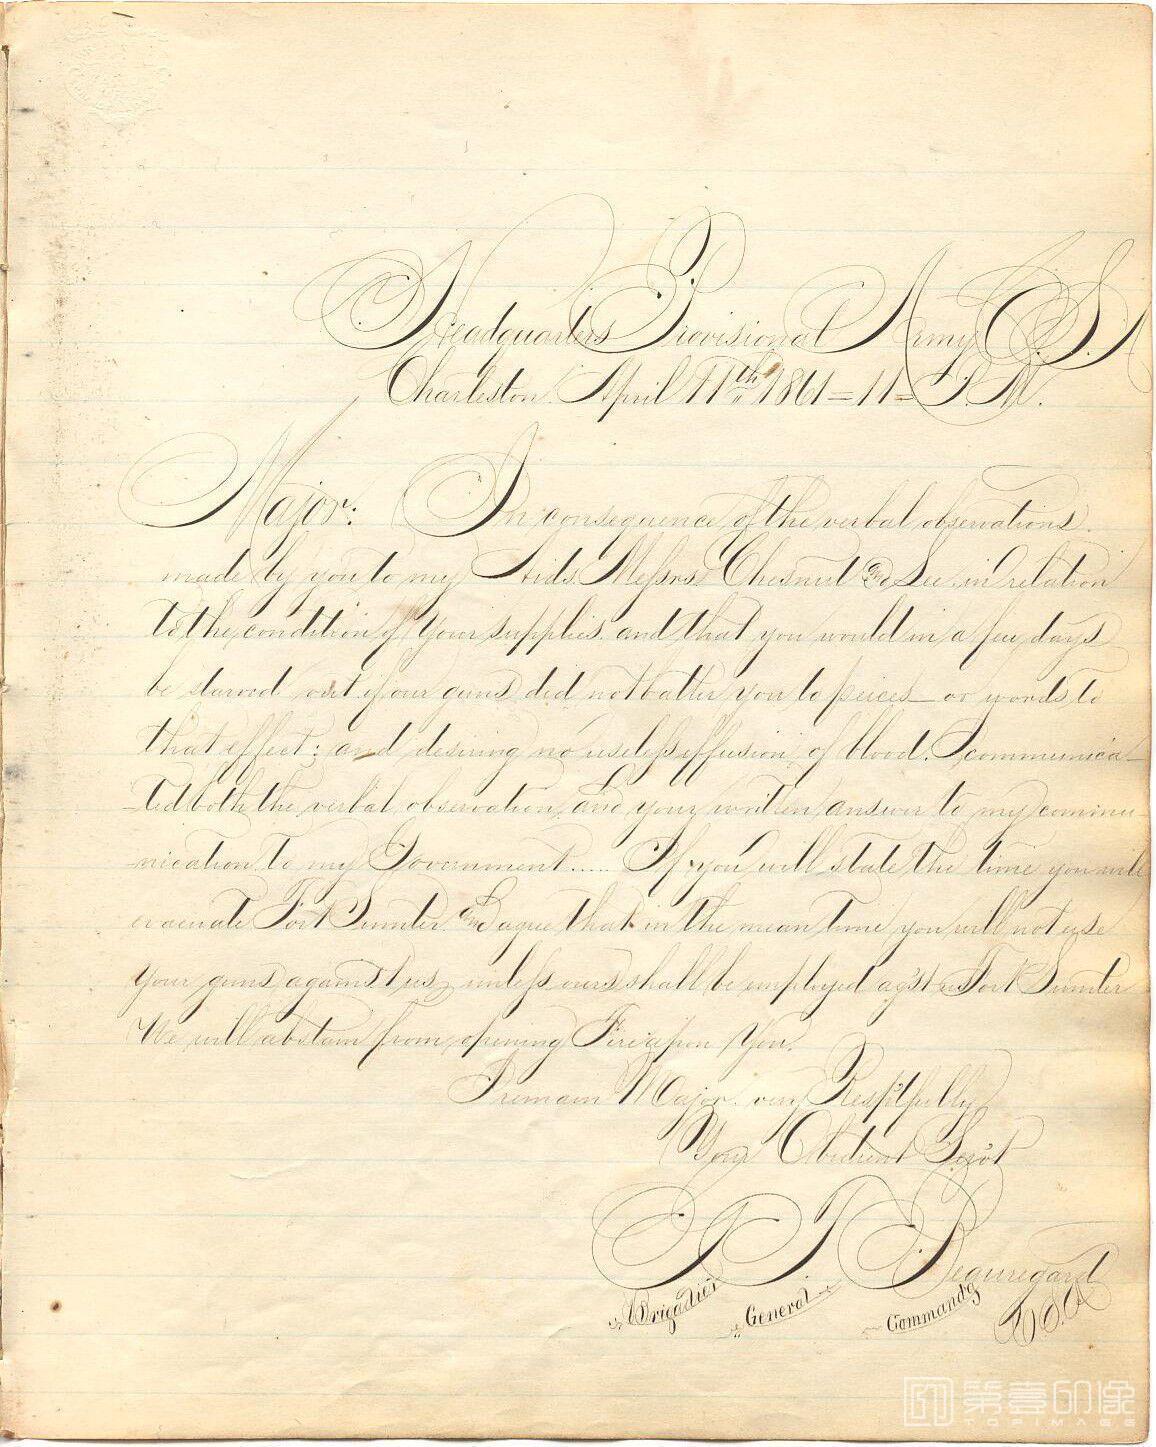 Headquarters Provisional Army C. S. A
Charleston April 11th 1861 = 11 = P. M.
Major: In consequence of the verbal observations
made by you to my Aids Messrs Chesnut and Lee in relation
to the condition of your supplies. and that you would in a few days
be starved out if our guns did not batter you to peices — or words to
that effect; and desiring no useless effusion of blood. I communica-
-ted both the verbal observation, and your written answer to my commu-
-nication to my Government ..... If you will state the time you will
evacuate Fort Sumter and agree that in the mean time you will not use
your guns against us, unless ours shall be employed agst Fort Sumter
We will abstain from opening Fire upon You.
I remain Major. very Respctfully
Your Obedient Servt
Beauregard
Brigadier General Commandg
C S. A
第壹印像
TOPIMAGE